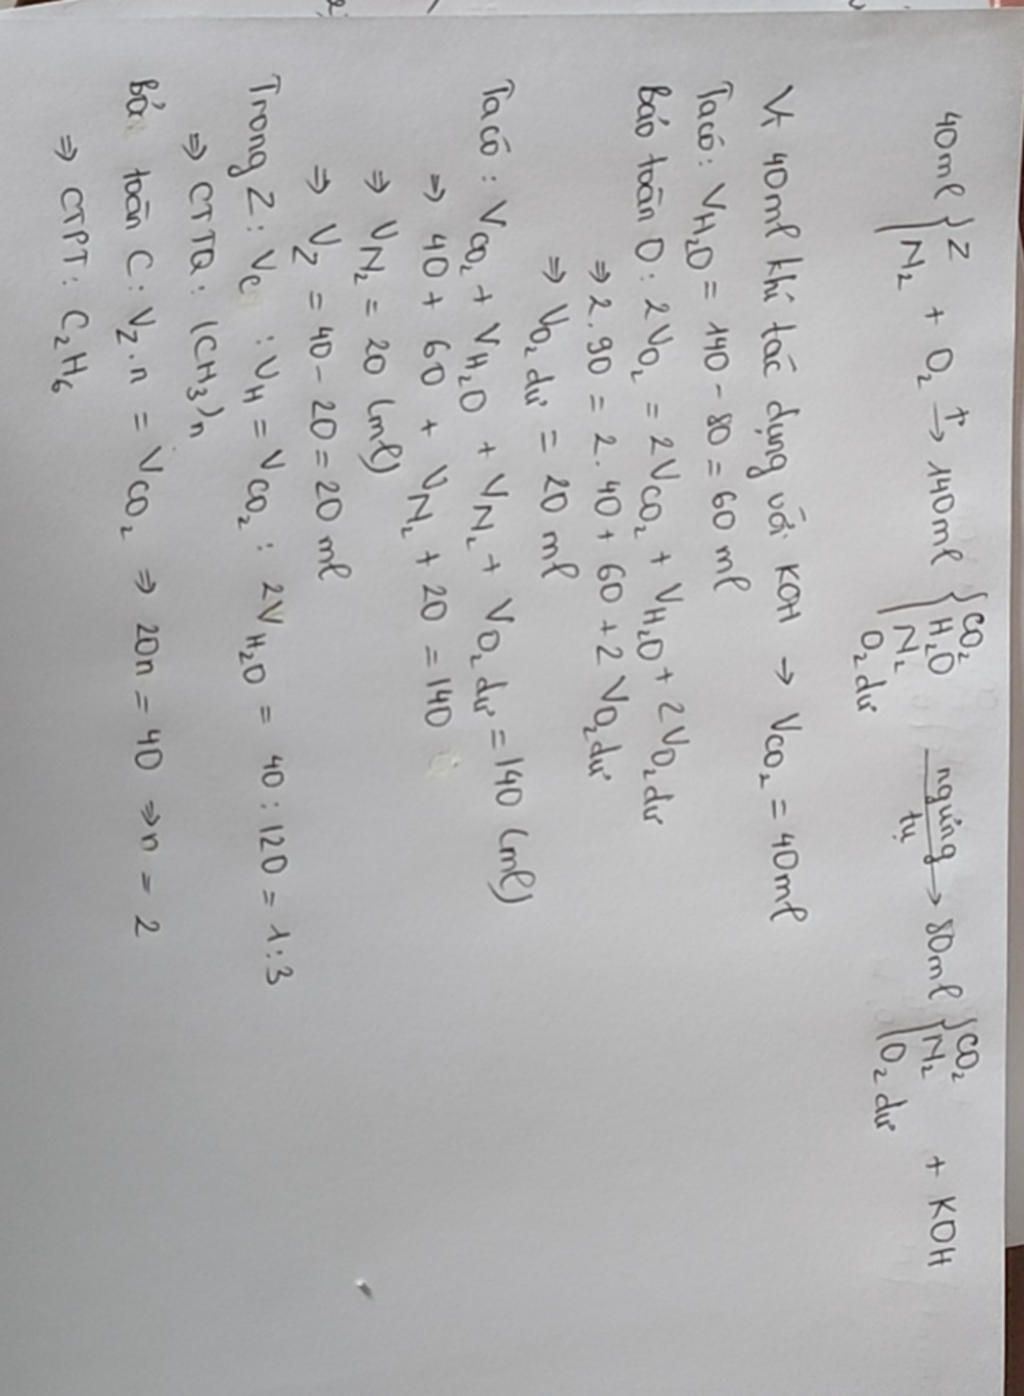 40ml { Z N₂ + O₂ →(t°) 140ml { CO₂ H₂O N₂ O₂ dư —ngưng tụ→ 80ml { CO₂ N₂ O₂ dư + KOH
Vì 40ml khí tác dụng với KOH → V_CO₂ = 40ml
Ta có: V_H₂O = 140 - 80 = 60 ml
Bảo toàn O: 2V_O₂ = 2V_CO₂ + V_H₂O + 2V_O₂ dư
⇒ 2.90 = 2.40 + 60 + 2V_O₂ dư
⇒ V_O₂ dư = 20 ml
Ta có: V_CO₂ + V_H₂O + V_N₂ + V_O₂ dư = 140 (ml)
⇒ 40 + 60 + V_N₂ + 20 = 140
⇒ V_N₂ = 20 (ml)
⇒ V_Z = 40 - 20 = 20 ml
Trong Z: V_C : V_H = V_CO₂ : 2V_H₂O = 40 : 120 = 1:3
⇒ CTTQ: (CH₃)n
Bả toàn C: V_Z.n = V_CO₂ ⇒ 20n = 40 ⇒ n = 2
⇒ CTPT: C₂H₆